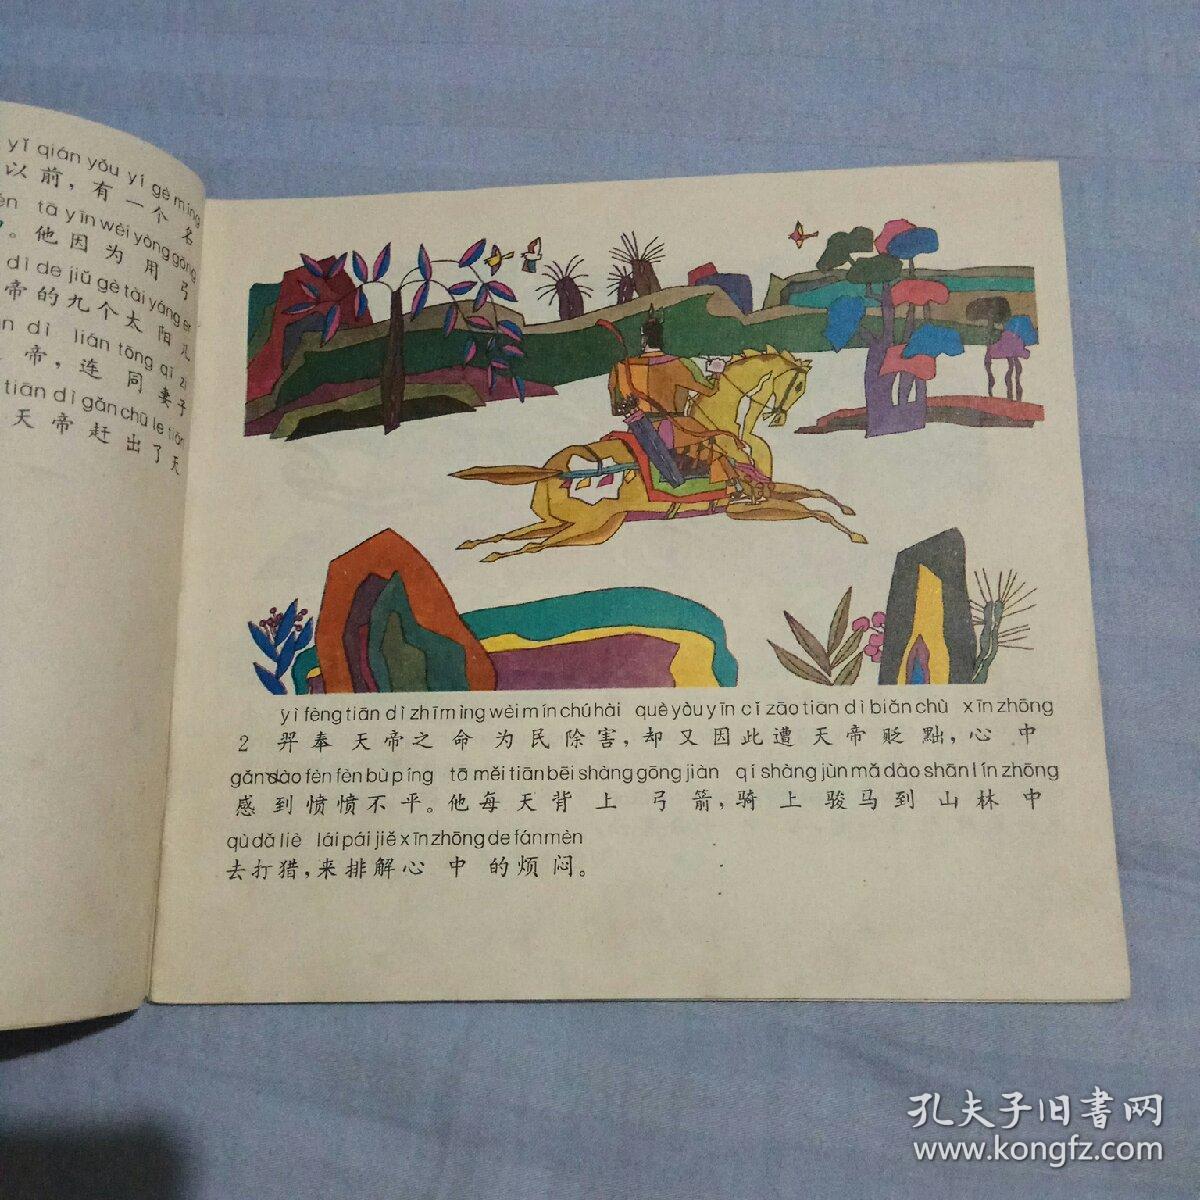 yǐ qián yǒu yí gè míng
以前，有一个名
tā yīn wèi yòng gōng
。他因为用弓
dì de jiǔ gè tài yáng ér
帝的九个太阳儿
dì lián tóng qī zi
帝，连同妻子
tiān dì gǎn chū le tiān
天帝赶出了天
yì fèng tiān dì zhī mìng wèi mín chú hài què yòu yīn cǐ zāo tiān dì biǎn chù xīn zhōng
2 羿奉天帝之命为民除害，却又因此遭天帝贬黜，心中
gǎn dào fèn fèn bù píng tā měi tiān bēi shàng gōng jiàn qí shàng jùn mǎ dào shān lín zhōng
感到愤愤不平。他每天背上弓箭，骑上骏马到山林中
qù dǎ liè lái pái jiě xīn zhōng de fán mèn
去打猎，来排解心中的烦闷。
孔夫子旧書网
www.kongfz.com